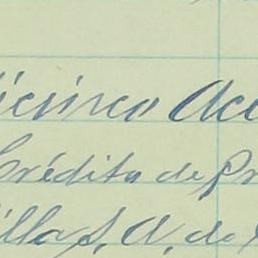 icinco Acc
Crédito de Pr
illa S. A. de